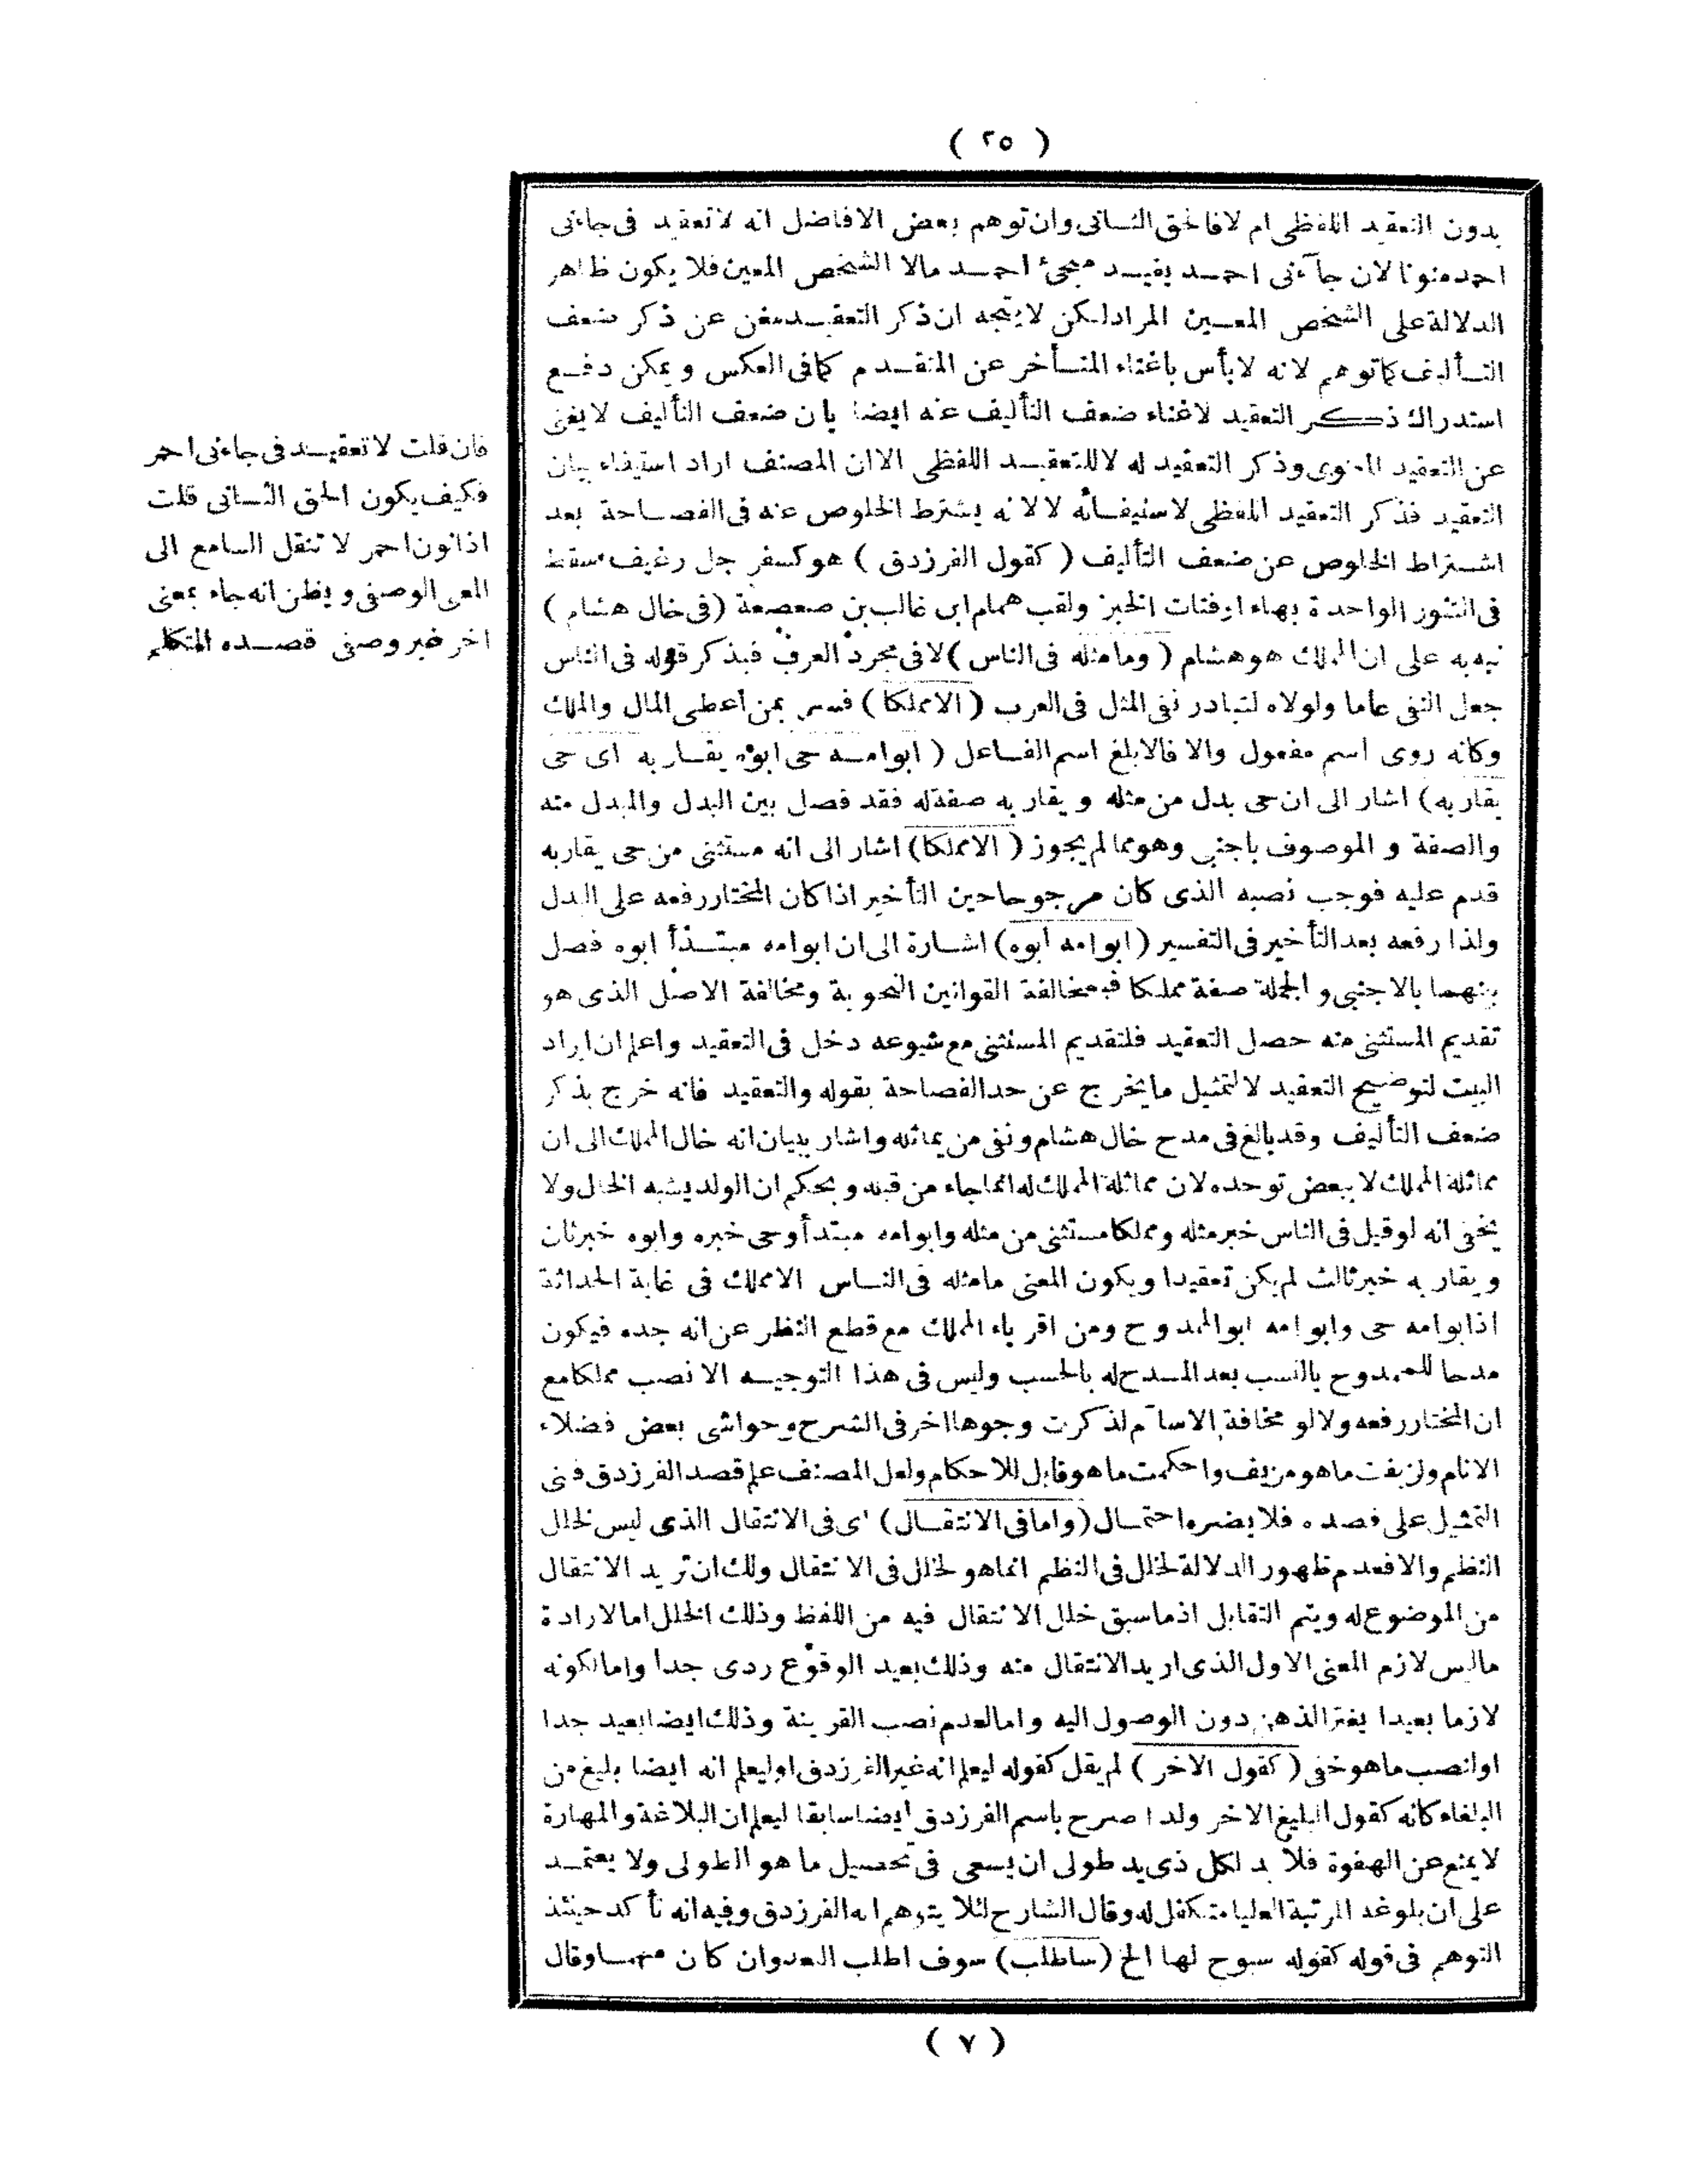 ( ٢٥ )
بدون التعقيد اللفظى ام لا فالحق الثانى وان توهم بعض الافاضل انه لا تعقيد فى جاءنى
احمد منونا لان جآءنى احمد يفيد مجئ احمد مالا الشخص المعين فلا يكون ظاهر
الدلالة على الشخص المعين المراد لكن لا يتجه ان ذكر التعقيد مغن عن ذكر ضعف
التأليف كما توهم لانه لا بأس باغناء المتأخر عن المتقدم كما فى العكس ويمكن دفع
استدراك ذكر التعقيد لاغناء ضعف التأليف عنه ايضا بان ضعف التأليف لا يغنى
عن التعقيد المعنوى وذكر التعقيد له لا للتعقيد اللفظى الا ان المصنف اراد استيفاء بيان
التعقيد فذكر التعقيد اللفظى لاستيفائه لا لانه يشترط الخلوص عنه فى الفصاحة بعد
اشتراط الخلوص عن ضعف التأليف ( كقول الفرزدق ) هو كسفرجل رغيف سقط
فى التنور الواحدة بهاء اوفتات الخبز ولقب همام ابن غالب بن صعصعة (فى خال هشام )
نبه به على ان الملك هو هشام ( وما مثله فى الناس ) لا فى مجرد العرف فبذكر قوله فى الناس
جعل النفى عاما ولولاه لتبادر نفى المثل فى العرب ( الا مملكا ) فسر بمن أعطى المال والملك
وكانه روى اسم مفعول والا فالابلغ اسم الفاعل ( ابو امه حى ابوه يقاربه اى حى
يقاربه ) اشار الى ان حى بدل من مثله ويقاربه صفة له فقد فصل بين البدل والمبدل منه
والصفة والموصوف باجنبى وهو مما لم يجوز ( الا مملكا) اشار الى انه مستثنى من حى يقاربه
قدم عليه فوجب نصبه الذى كان مرجوحا حين التأخير اذا كان المختار رفعه على البدل
ولذا رفعه بعد التأخير فى التفسير ( ابو امه ابوه) اشارة الى ان ابو امه مبتدأ ابوه فصل
بينهما بالاجنبى والجملة صفة مملكا فبمخالفة القوانين النحوية ومخالفة الاصل الذى هو
تقديم المستثنى منه حصل التعقيد فلتقديم المستثنى مع شيوعه دخل فى التعقيد واعلم ان ايراد
البيت لتوضيح التعقيد لا لتمثيل ما يخرج عن حد الفصاحة بقوله والتعقيد فانه خرج بذكر
ضعف التأليف وقد بالغ فى مدح خال هشام ونفى من يماثله واشار ببيان انه خال الملك الى ان
مماثلة الملك لا يبعض توحده لان مماثلة الملك له انما جاء من قبله وبحكم ان الولد يشبه الخال ولا
يخفى انه لو قيل فى الناس خبر مثله ومملكا مستثنى من مثله وابو امه مبتدأ وحى خبره وابوه خبرثان
ويقاربه خبر ثالث لم يكن تعقيدا ويكون المعنى ما مثله فى الناس الا مملك فى غاية الحداثة
اذ ابو امه حى وابو امه ابو الممدوح ومن اقرباء الملك مع قطع النظر عن انه جده فيكون
مدحا للممدوح بالنسب بعد المدح له بالحسب وليس فى هذا التوجيه الا نصب مملكا مع
ان المختار رفعه ولا لو مخافة الاسآم لذكرت وجوها اخر فى الشرح وحواشى بعض فضلاء
الانام ولزيفت ما هو مزيف واحكمت ما هو قابل للاحكام ولعل المصنف علم قصد الفرزدق فبنى
التمثيل على قصده فلا يضره احتمال (واما فى الانتقال ) اى فى الانتقال الذى ليس لخلل
النظم والا فعدم ظهور الدلالة لخلل فى النظم انما هو لخلل فى الانتقال ولك ان تريد الانتقال
من الموضوع له ويتم التقابل اذ ما سبق خلل الانتقال فيه من اللفظ وذلك الخلل اما لارادة
ما ليس لازم المعنى الاول الذى اريد الانتقال منه وذلك بعيد الوقوع ردى جدا واما لكونه
لازما بعيدا يفتر الذهن دون الوصول اليه واما لعدم نصب القرينة وذلك ايضا بعيد جدا
او لنصب ما هو خفى ( كقول الاخر ) لم يقل كقوله ليعلم انه غير الفرزدق او ليعلم انه ايضا بليغ من
البلغاء كانه كقول البليغ الاخر ولذا صرح باسم الفرزدق ايضا سابقا ليعلم ان البلاغة والمهارة
لا يمنع عن الهفوة فلا بد لكل ذى يد طولى ان يسعى فى تحصيل ما هو الطولى ولا يعتمد
على ان بلوغه المرتبة العليا متكفل له وقال الشارح لئلا يتوهم انه الفرزدق وفيه انه تأكد حينئذ
التوهم فى قوله كقوله سبوح لها الخ ( ساطلب) سوف اطلب العدوان كان وقال
( ٧ )
فان قلت لا تعقيد فى جاءنى احمر
فكيف يكون الحق الثانى قلت
اذا نون احمر لا تنقل السامع الى
المعنى الوصفى ويظن انه جاء بمعنى
اخر غير وصفى قصده المتكلم